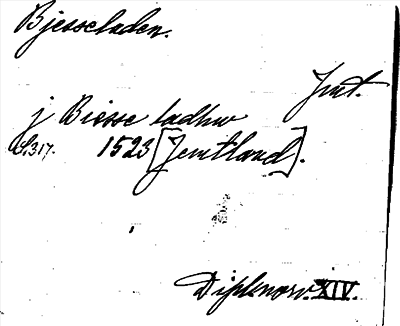 Bjesseladen.
Jmt.
j Biesse ladhw
S. 317. 1523 [Jemtland].
Diplnorv. XIV.